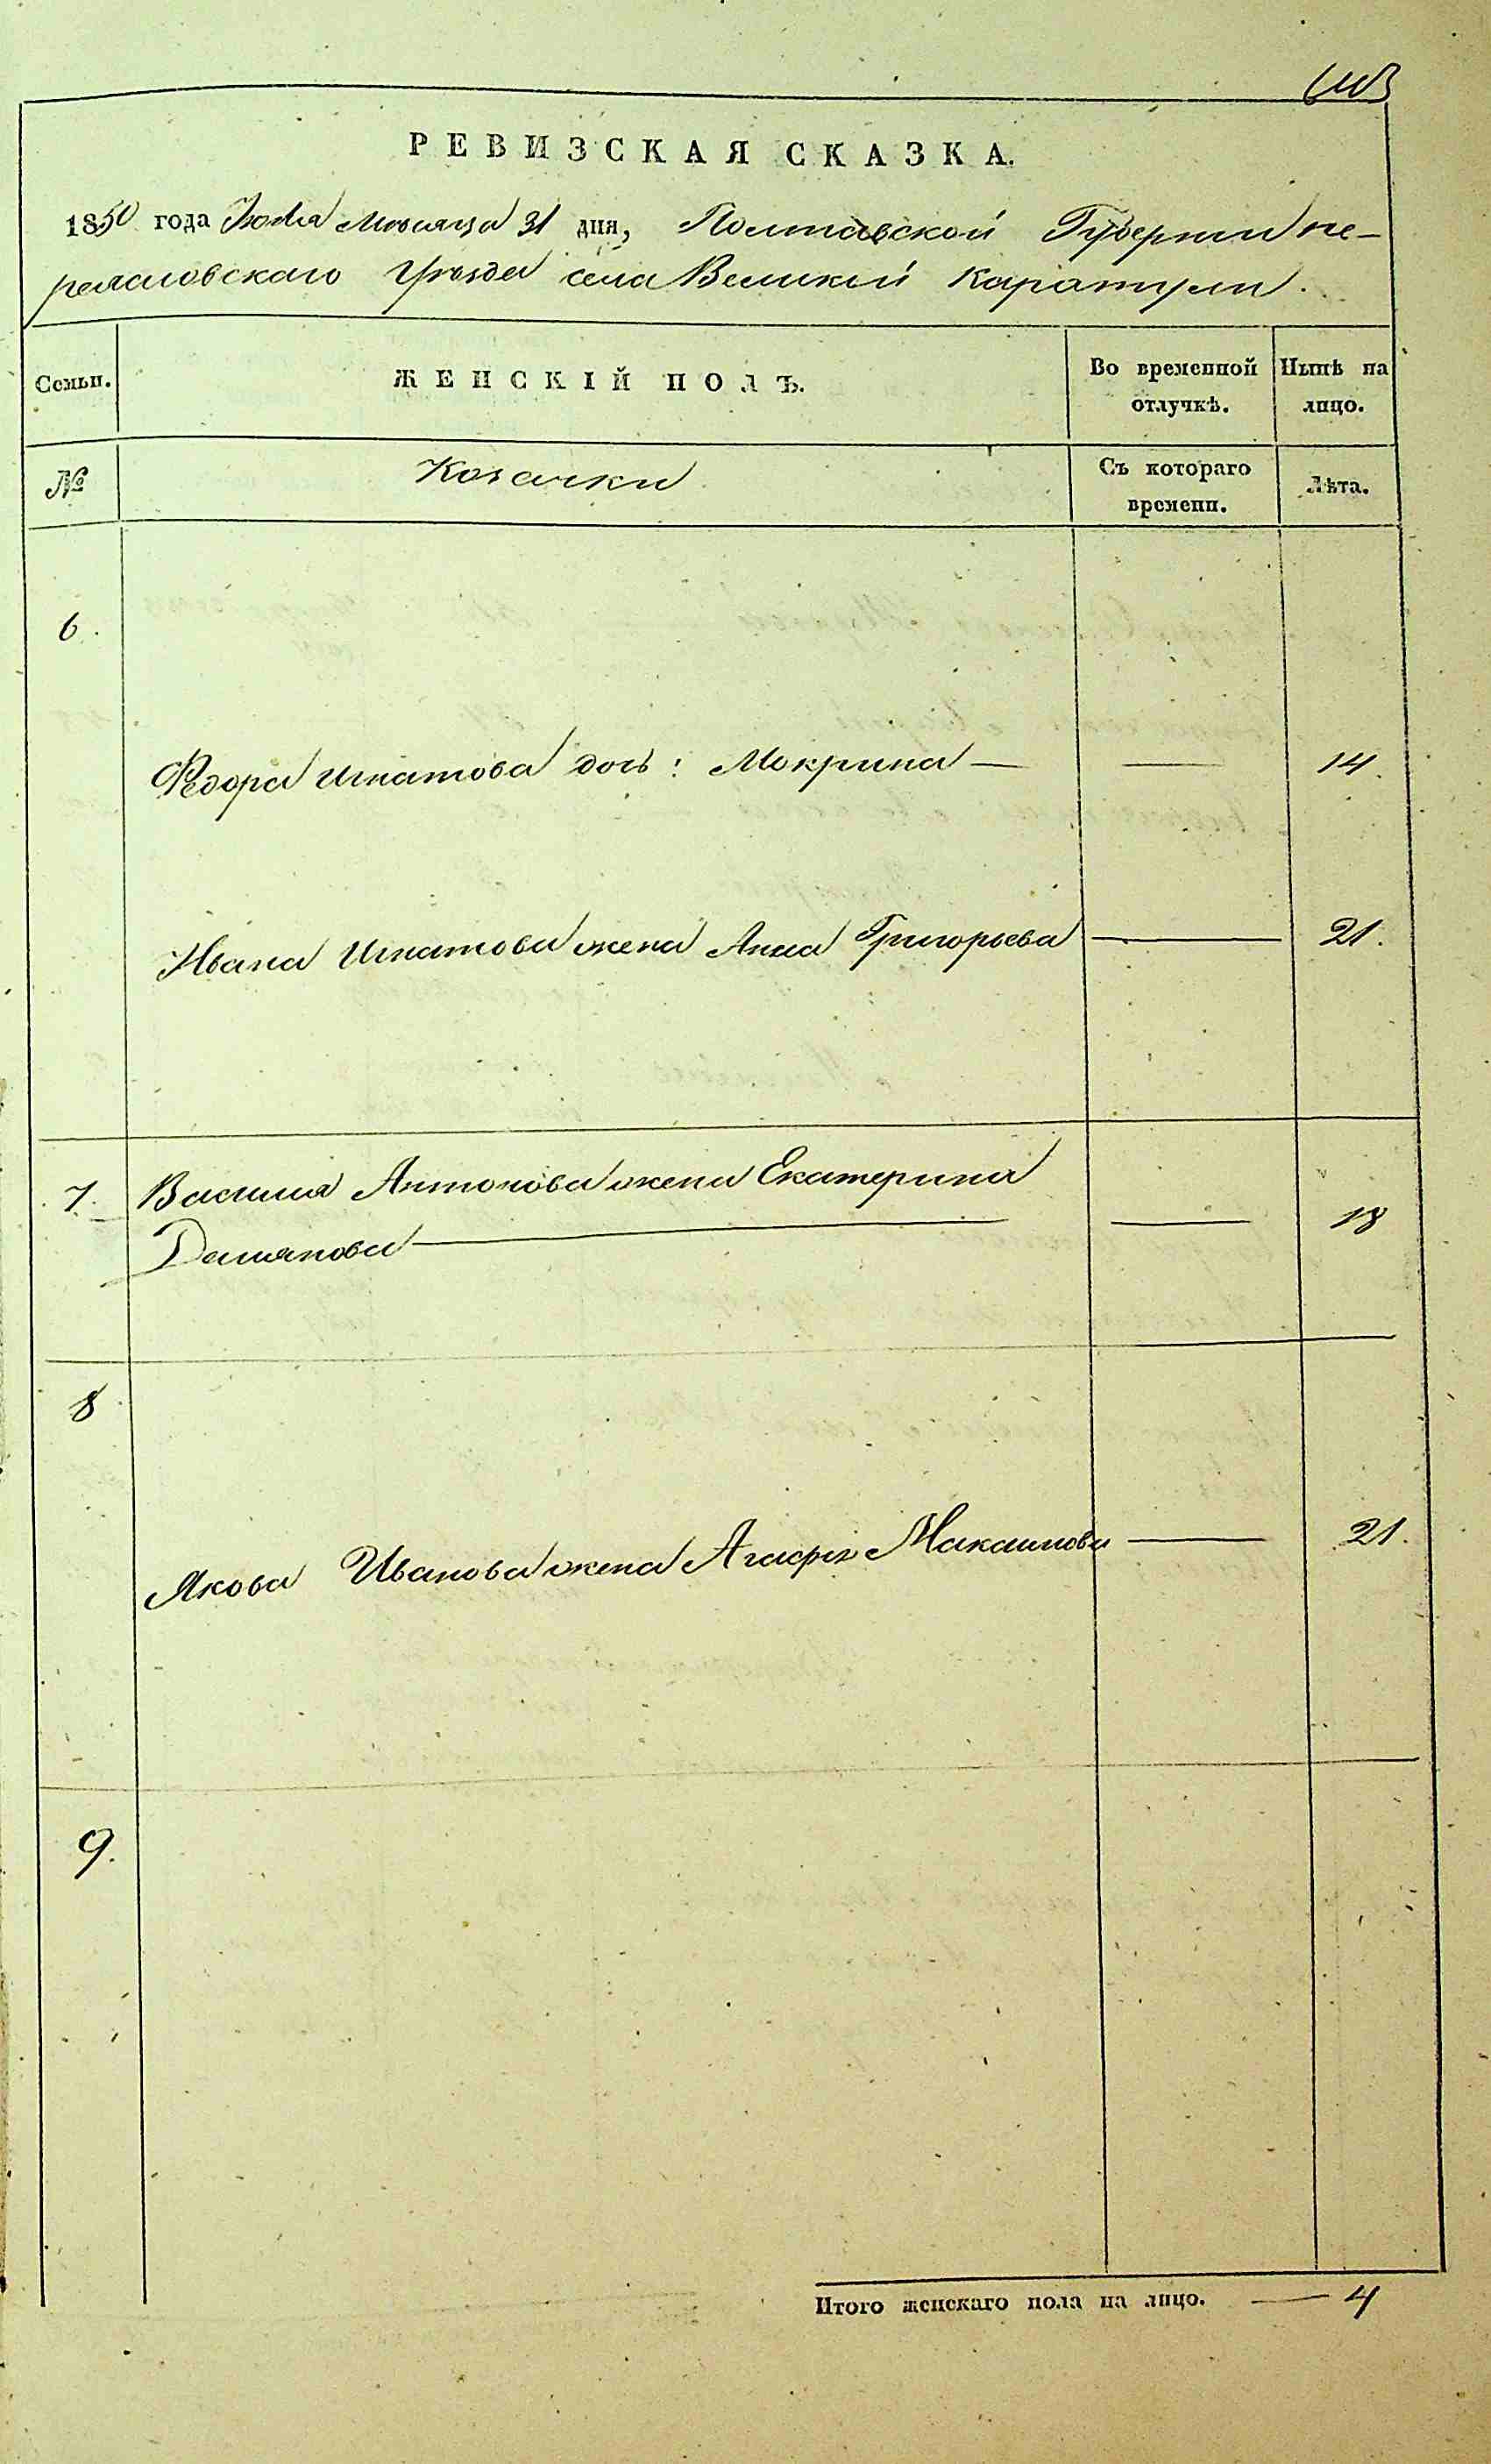 РЕВИЗСКАЯ СКАЗКА.
1850 года Июля Мѣсяца 31 дня, Полтавской Губерніи пе-
реяславскаго Уѣзда села Великой Каратули.
Семьи. ЖЕНСКІЙ ПОЛЪ. Во временной отлучкѣ. Нынѣ на лицо.
№ Козачки Съ котораго времени. Лѣта.
6.
Федора Игнатова дочь: Мокрина — — 14.
Ивана Игнатова жена Анна Григорьева — 21.
7. Василія Антонова жена Екатерина
Демянова — — 18
8
Якова Иванова жена Агафія Максимова — 21.
9.
Итого женскаго пола на лицо. — 4